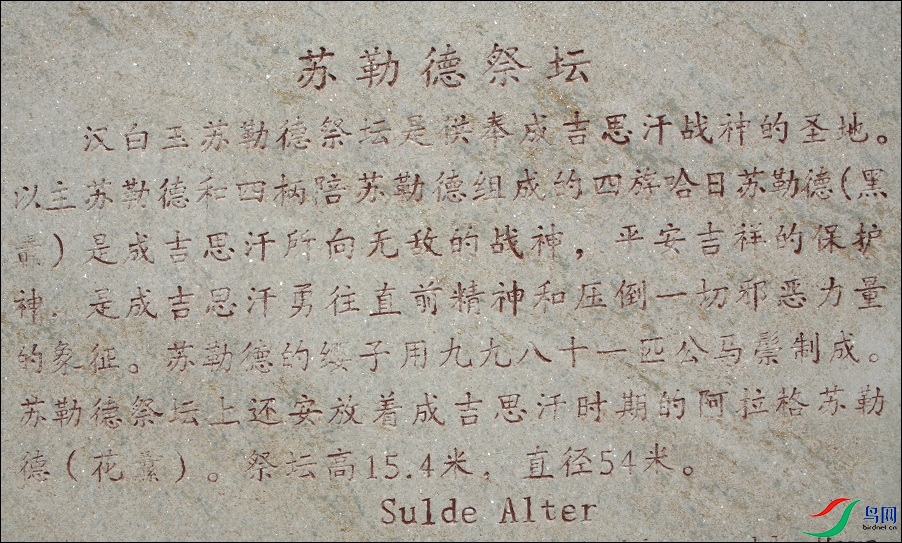 苏勒德祭坛
汉白玉苏勒德祭坛是供奉成吉思汗战神的圣地。
以主苏勒德和四柄陪苏勒德组成的四游哈日苏勒德(黑
纛)是成吉思汗所向无敌的战神，平安吉祥的保护
神．是成吉思汗勇往直前精神和压倒一切邪恶力量
的象征。苏勒德的缨子用九九八十一匹公马鬃制成。
苏勒德祭坛上还安放着成吉思汗时期的阿拉格苏勒
德(花纛)。祭坛高15.4米，直径54米。
Sulde Alter
鸟网
birdnet.cn